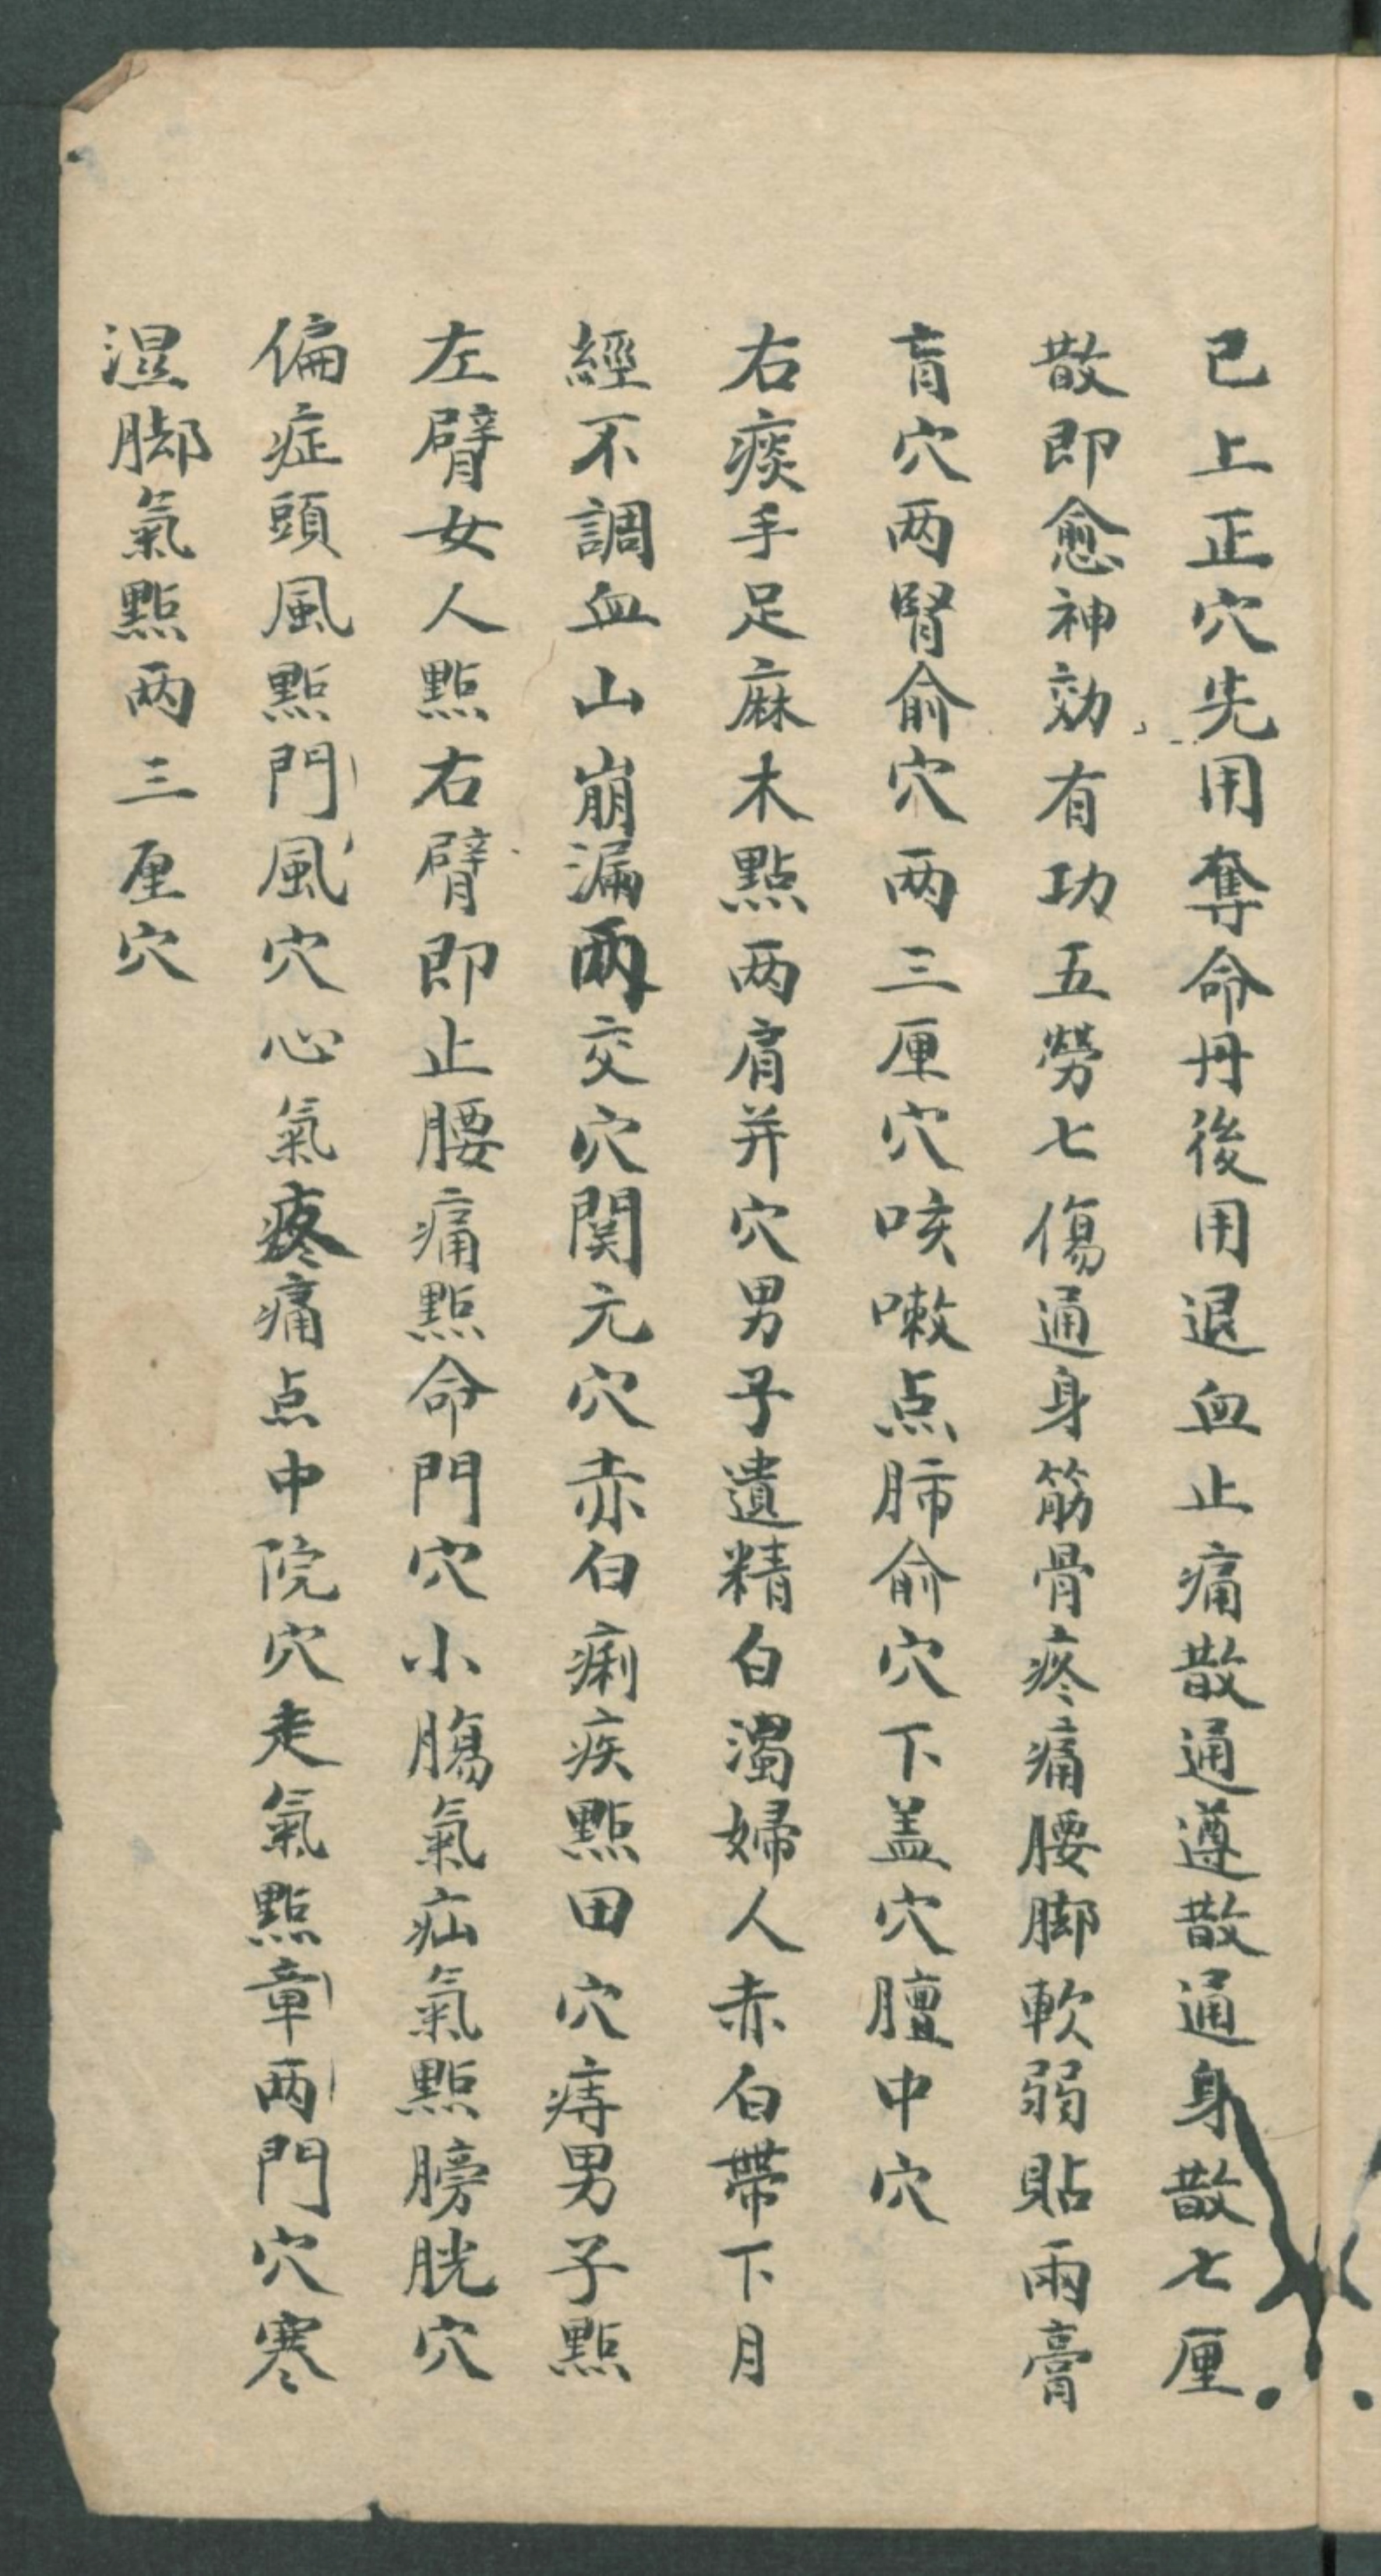 已上正穴先用奪命丹後用退血止痛散通遵散通身散七厘
散即愈神効有功五勞七傷通身筋骨疼痛腰脚軟弱貼兩膏
肓穴两腎俞穴两三厘穴咳嗽点肺俞穴下盖穴膻中穴
右痰手足麻木點两肩并穴男子遺精白濁婦人赤白帶下月
經不調血山崩漏兩交穴関元穴赤白痢疾點田穴痔男子點
左臂女人點右臂即止腰痛點命門穴小膓氣疝氣點膀胱穴
偏症頭風點門風穴心氣疼痛点中院穴走氣點章两門穴寒
濕脚氣點两三厘穴